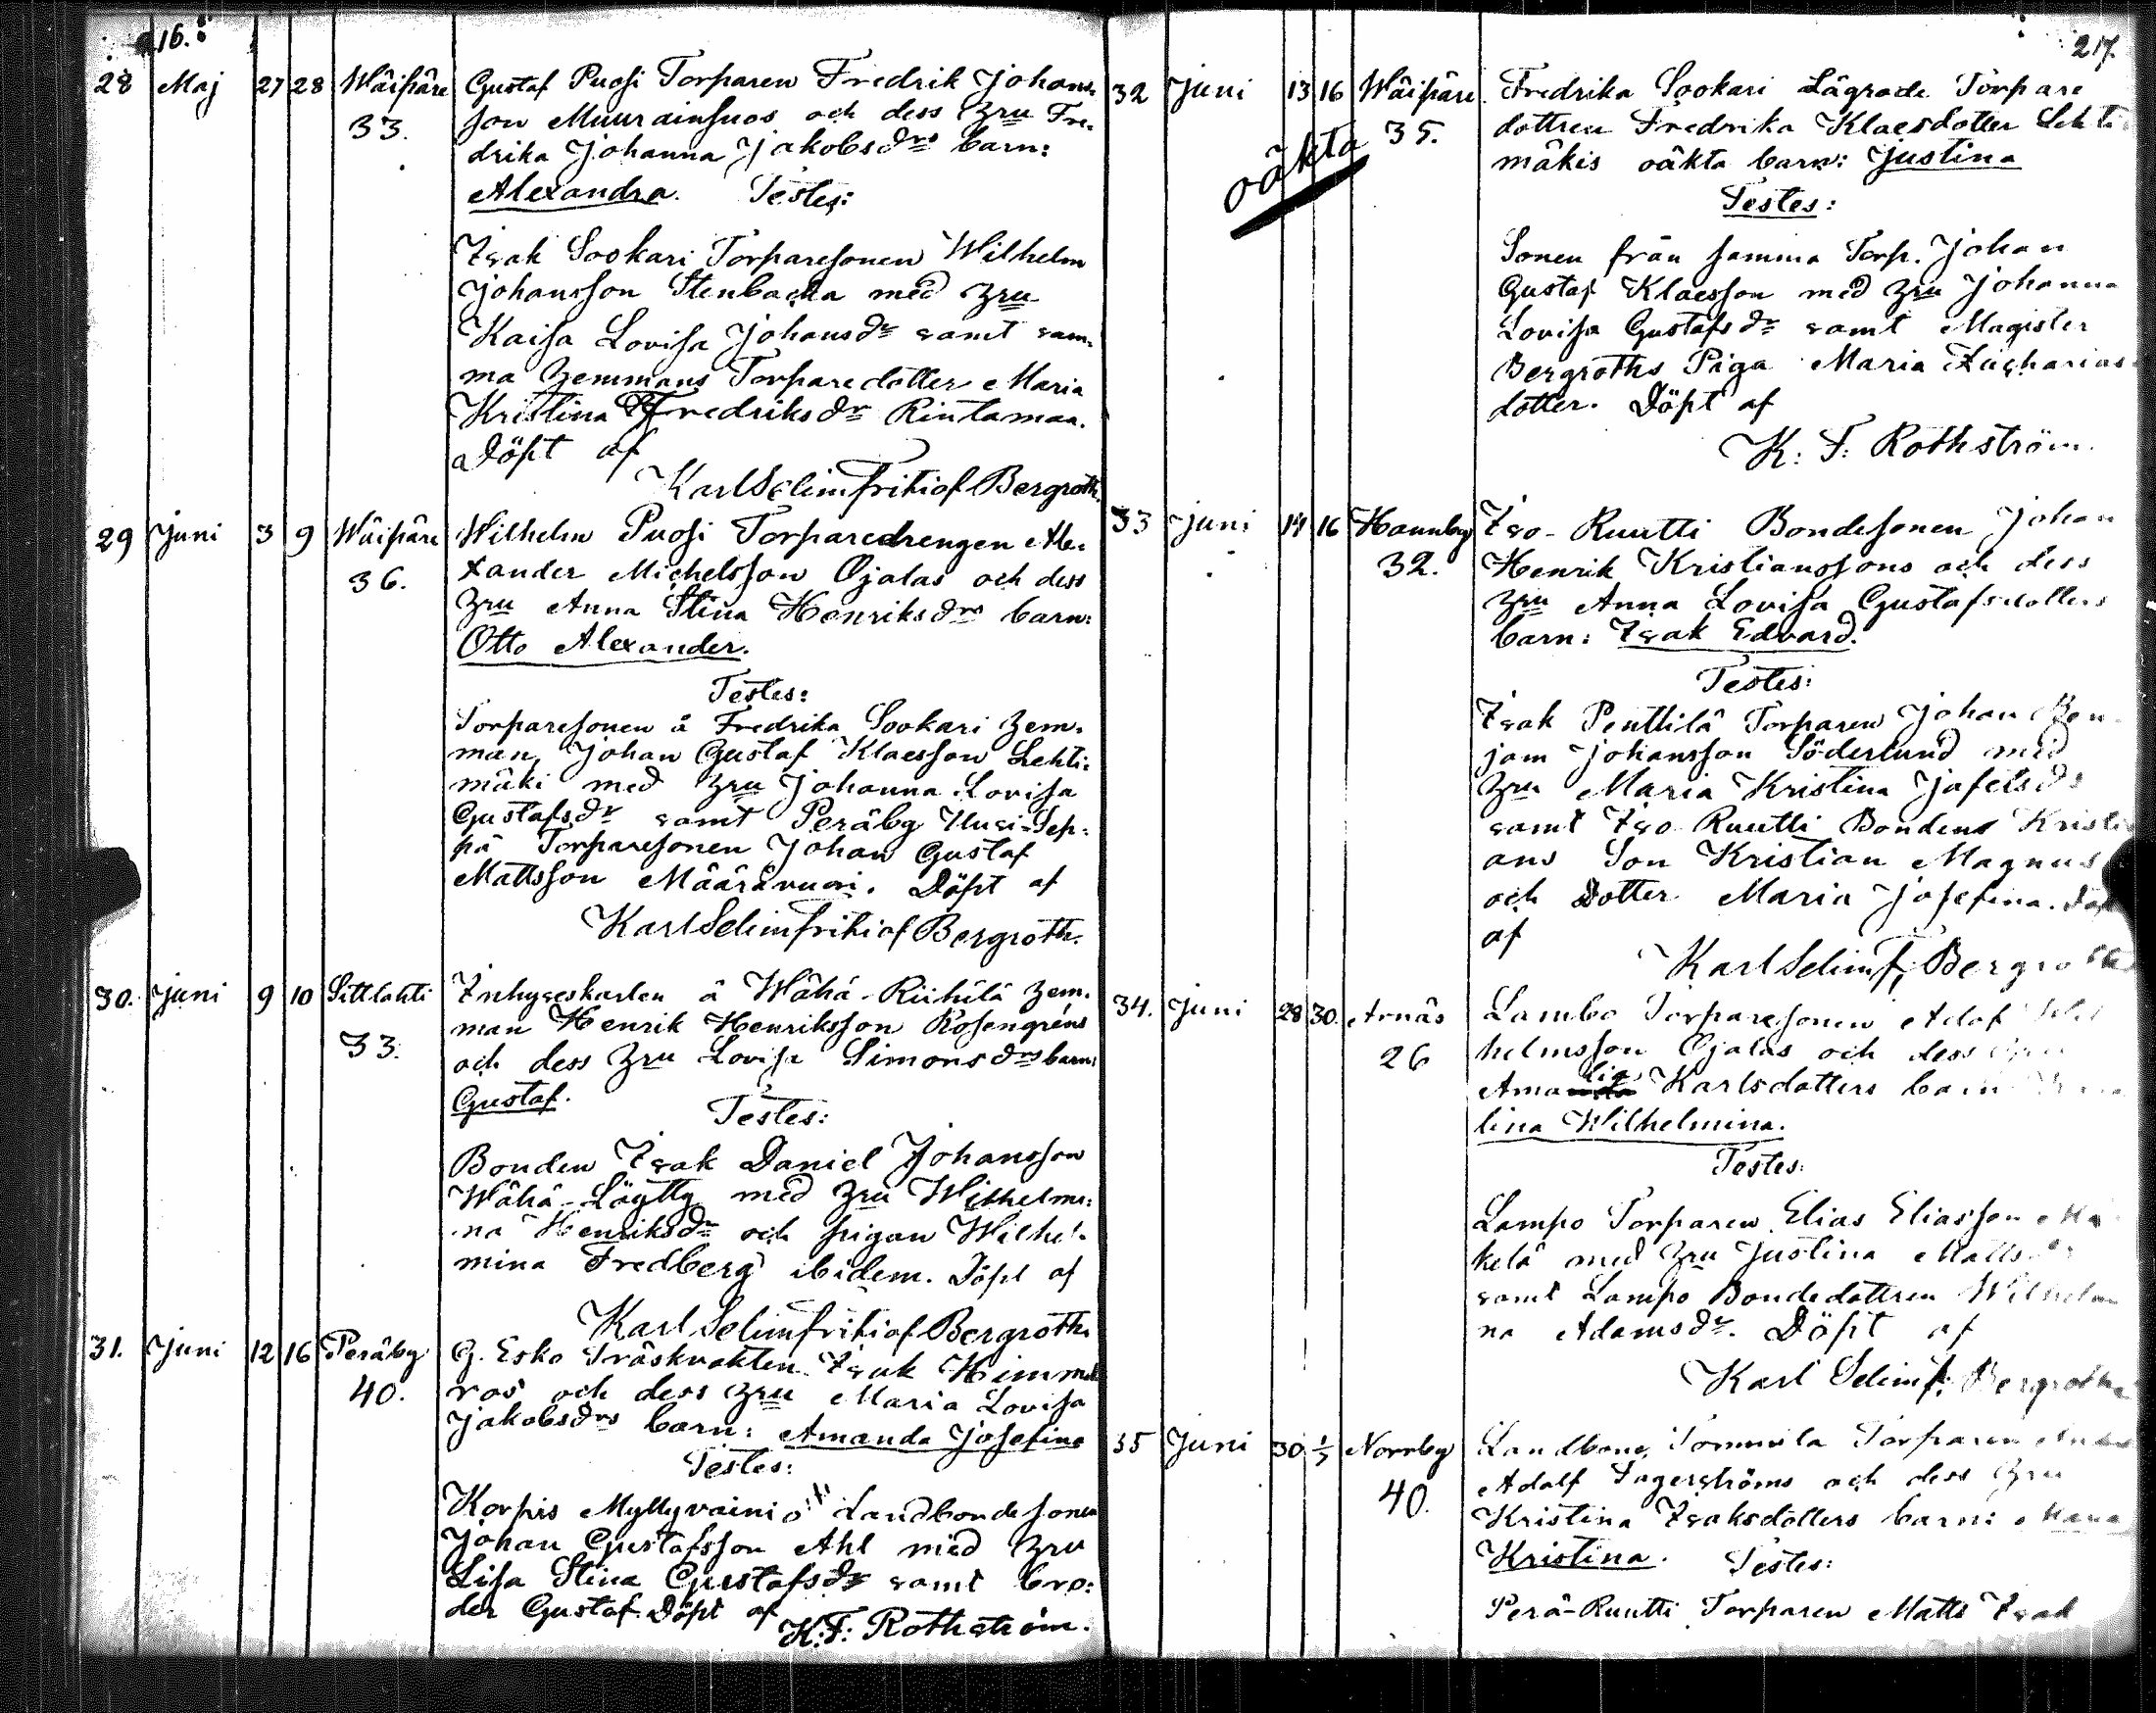 216.
28 Maj 27 28 Wäipäre 33.
Gustaf Puosi Torparen Fredrik Johans-
son Muurainsuos och dess hru Fre-
drika Johanna Jakobsdrs barn:
Alexandra. Testes:
Isak Sookari Torparesonen Wilhelm
Johansson Stenbacka med hru
Kaisa Lovisa Johansdr samt sam-
ma hemmans Torparedotter Maria
Kristina Fredriksdr Rintamaa.
Döpt af
Karl Selim Fritiof Bergroth.
29 Juni 3 9 Wäipäre 36.
Wilhelm Puosi Torparedrengen Ale-
xander Michelsson Ojalas och dess
hru Anna Stina Henriksdrs barn:
Otto Alexander.
Testes:
Torparesonen å Fredrika Sookari hem-
man, Johan Gustaf Klaesson Lehti-
mäki med hru Johanna Lovisa
Gustafsdr samt Peräby Uusi-Sep-
pä Torparesonen Johan Gustaf
Mattsson Määrävuori. Döpt af
Karl Selim Fritiof Bergroth.
30. Juni 9 10 Sittlahti 33.
Inhyseskarlen å Wähä-Riihilä hem-
man Henrik Henriksson Rosengréns
och dess hru Lovisa Simonsdrs barn:
Gustaf.
Testes:
Bonden Isak Daniel Johansson
Wähä-Löytty med hru Wilhelmi-
na Henriksdr och pigan Wilhel-
mina Fredberg ibidem. Döpt af
Karl Selim Fritiof Bergroth.
31. Juni 12 16 Peräby 40.
G. Esko Träskvakten Isak Himma
ros och dess hru Maria Lovisa
Jakobsdrs barn: Amanda Josefina
Testes:
Korpis Myllyvainio Landbondesonen
Johan Gustafsson Ahl med hru
Lisa Stina Gustafsdr samt bro-
der Gustaf. Döpt af
K. F. Rothström.
217.
32 Juni 13 16 Wäipäre 35.
oäkta
Fredrika Sookari Lägrade Torpare
dottren Fredrika Klaesdotter Lehti
mäkis oäkta barn: Justina
Testes:
Sonen från samma Torp. Johan
Gustaf Klaesson med hru Johanna
Lovisa Gustafsdr samt Magister
Bergroths Piga Maria Zacharias
dotter. Döpt af
K. F. Rothström.
33 Juni 14 16 Hannby 32.
Iso-Ruutti Bondesonen Johan
Henrik Kristianssons och dess
hru Anna Lovisa Gustafsdotters
barn: Isak Edvard.
Testes:
Isak Penttilä Torparen Johan Ben
jam Johansson Söderlund med
hru Maria Kristina Jafetsdr
samt Iso Ruutti Bondens Kristi
ans Son Kristian Magnus
och Dotter Maria Josefina. Döpt
af
Karl Selim F. Bergroth
34. Juni 28 30. Arnäs 26
Lambo Torparesonen Adolf
helmsson Ojalas och dess hru
Amalia Karlsdotters barn
lina Wilhelmina.
Testes:
Lampo Torparen Elias Eliasson Mä
kelä med hru Justina Mattsdr
samt Lampo Bondedottren Wilhelmi
na Adamsdr. Döpt af
Karl Selim F. Bergroth
35 Juni 30 1/7 Norrby 40.
Landbonde Tommila Torparen
Adolf Fagerströms och dess hru
Kristina Isaksdotters barn: Maria
Kristina. Testes:
Perä-Ruutti Torparen Matts Isak